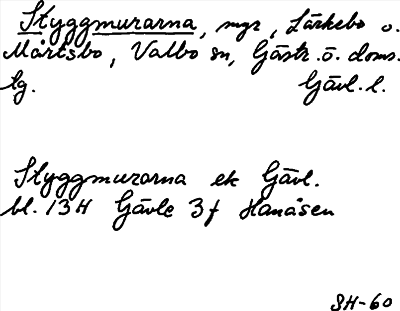 Styggmurarna, myr, Lärkebo o.
Mårtsbo, Valbo sn, Gästr. ö. doms.
lg. Gävl. l.
Styggmurarna ek Gävl.
bl. 13H Gävle 3f Hanåsen
SH-60